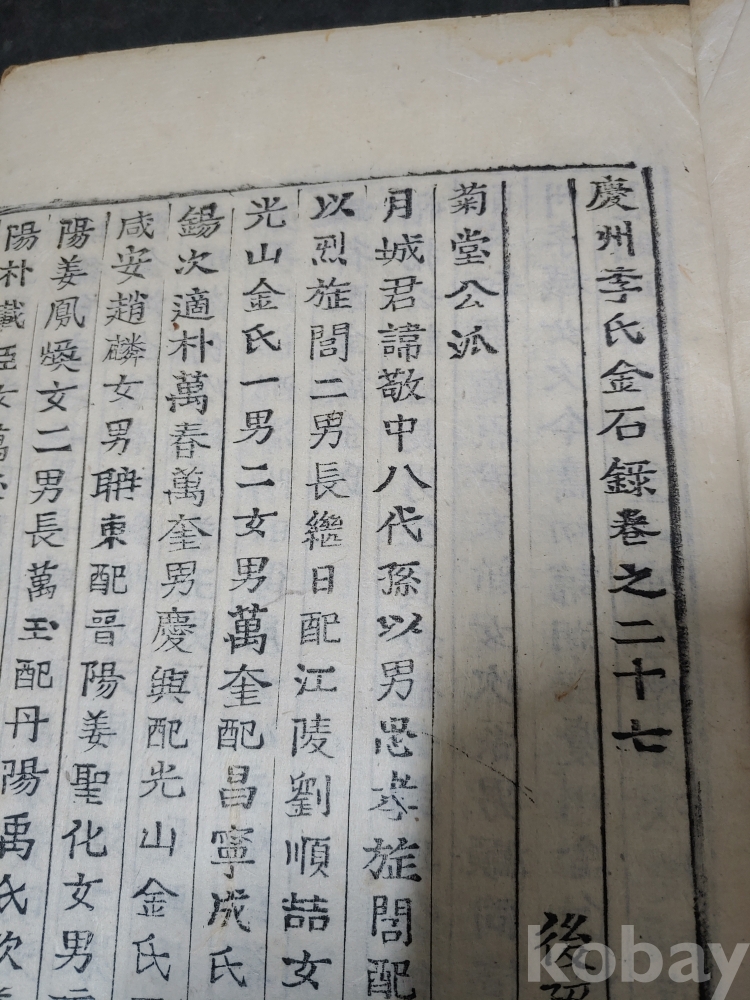 慶州李氏金石錄卷之二十七
後
菊堂公派
月城君諱敬中八代孫以男思孝旌閭配
以烈旌閭二男長繼日配江陵劉順喆女
光山金氏一男二女男萬奎配昌寧成氏
錫次適朴萬春萬奎男慶興配光山金氏
咸安趙麟女男聃東配晋陽姜聖化女男
陽姜鳳煥女二男長萬玉配丹陽禹氏次
陽朴
kobay